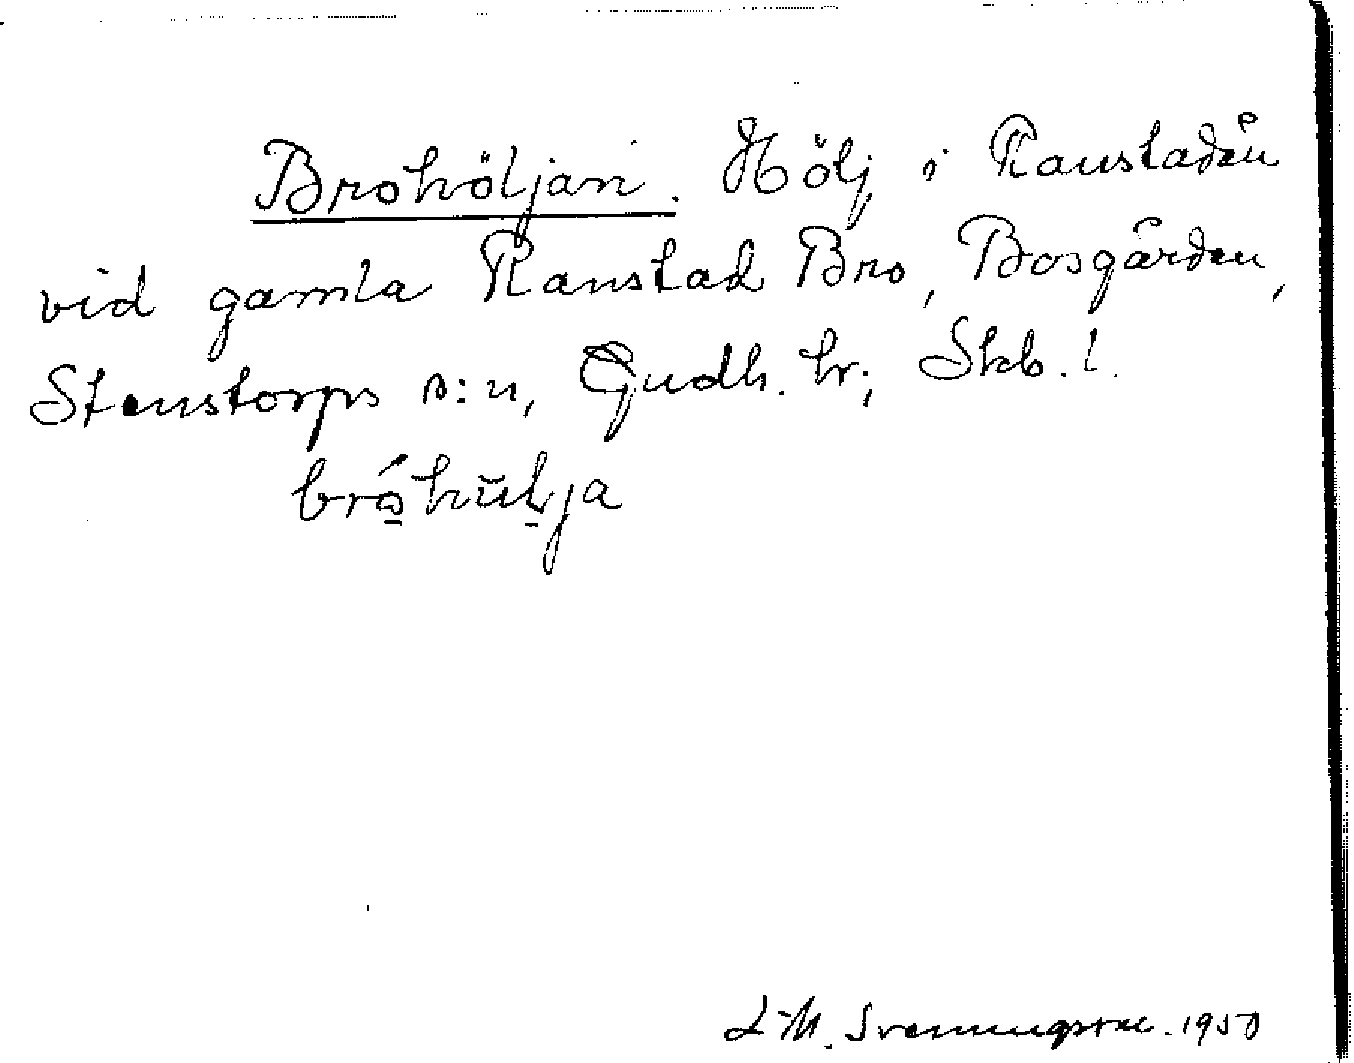 Brohöljan. Hölj i Ranstadån
vid gamla Ranstad Bro, Bosgården,
Stenstorps s:n, Gudh. hr; Skb. l.
bró̱hŭḻja
L-M. Svenningsson. 1950